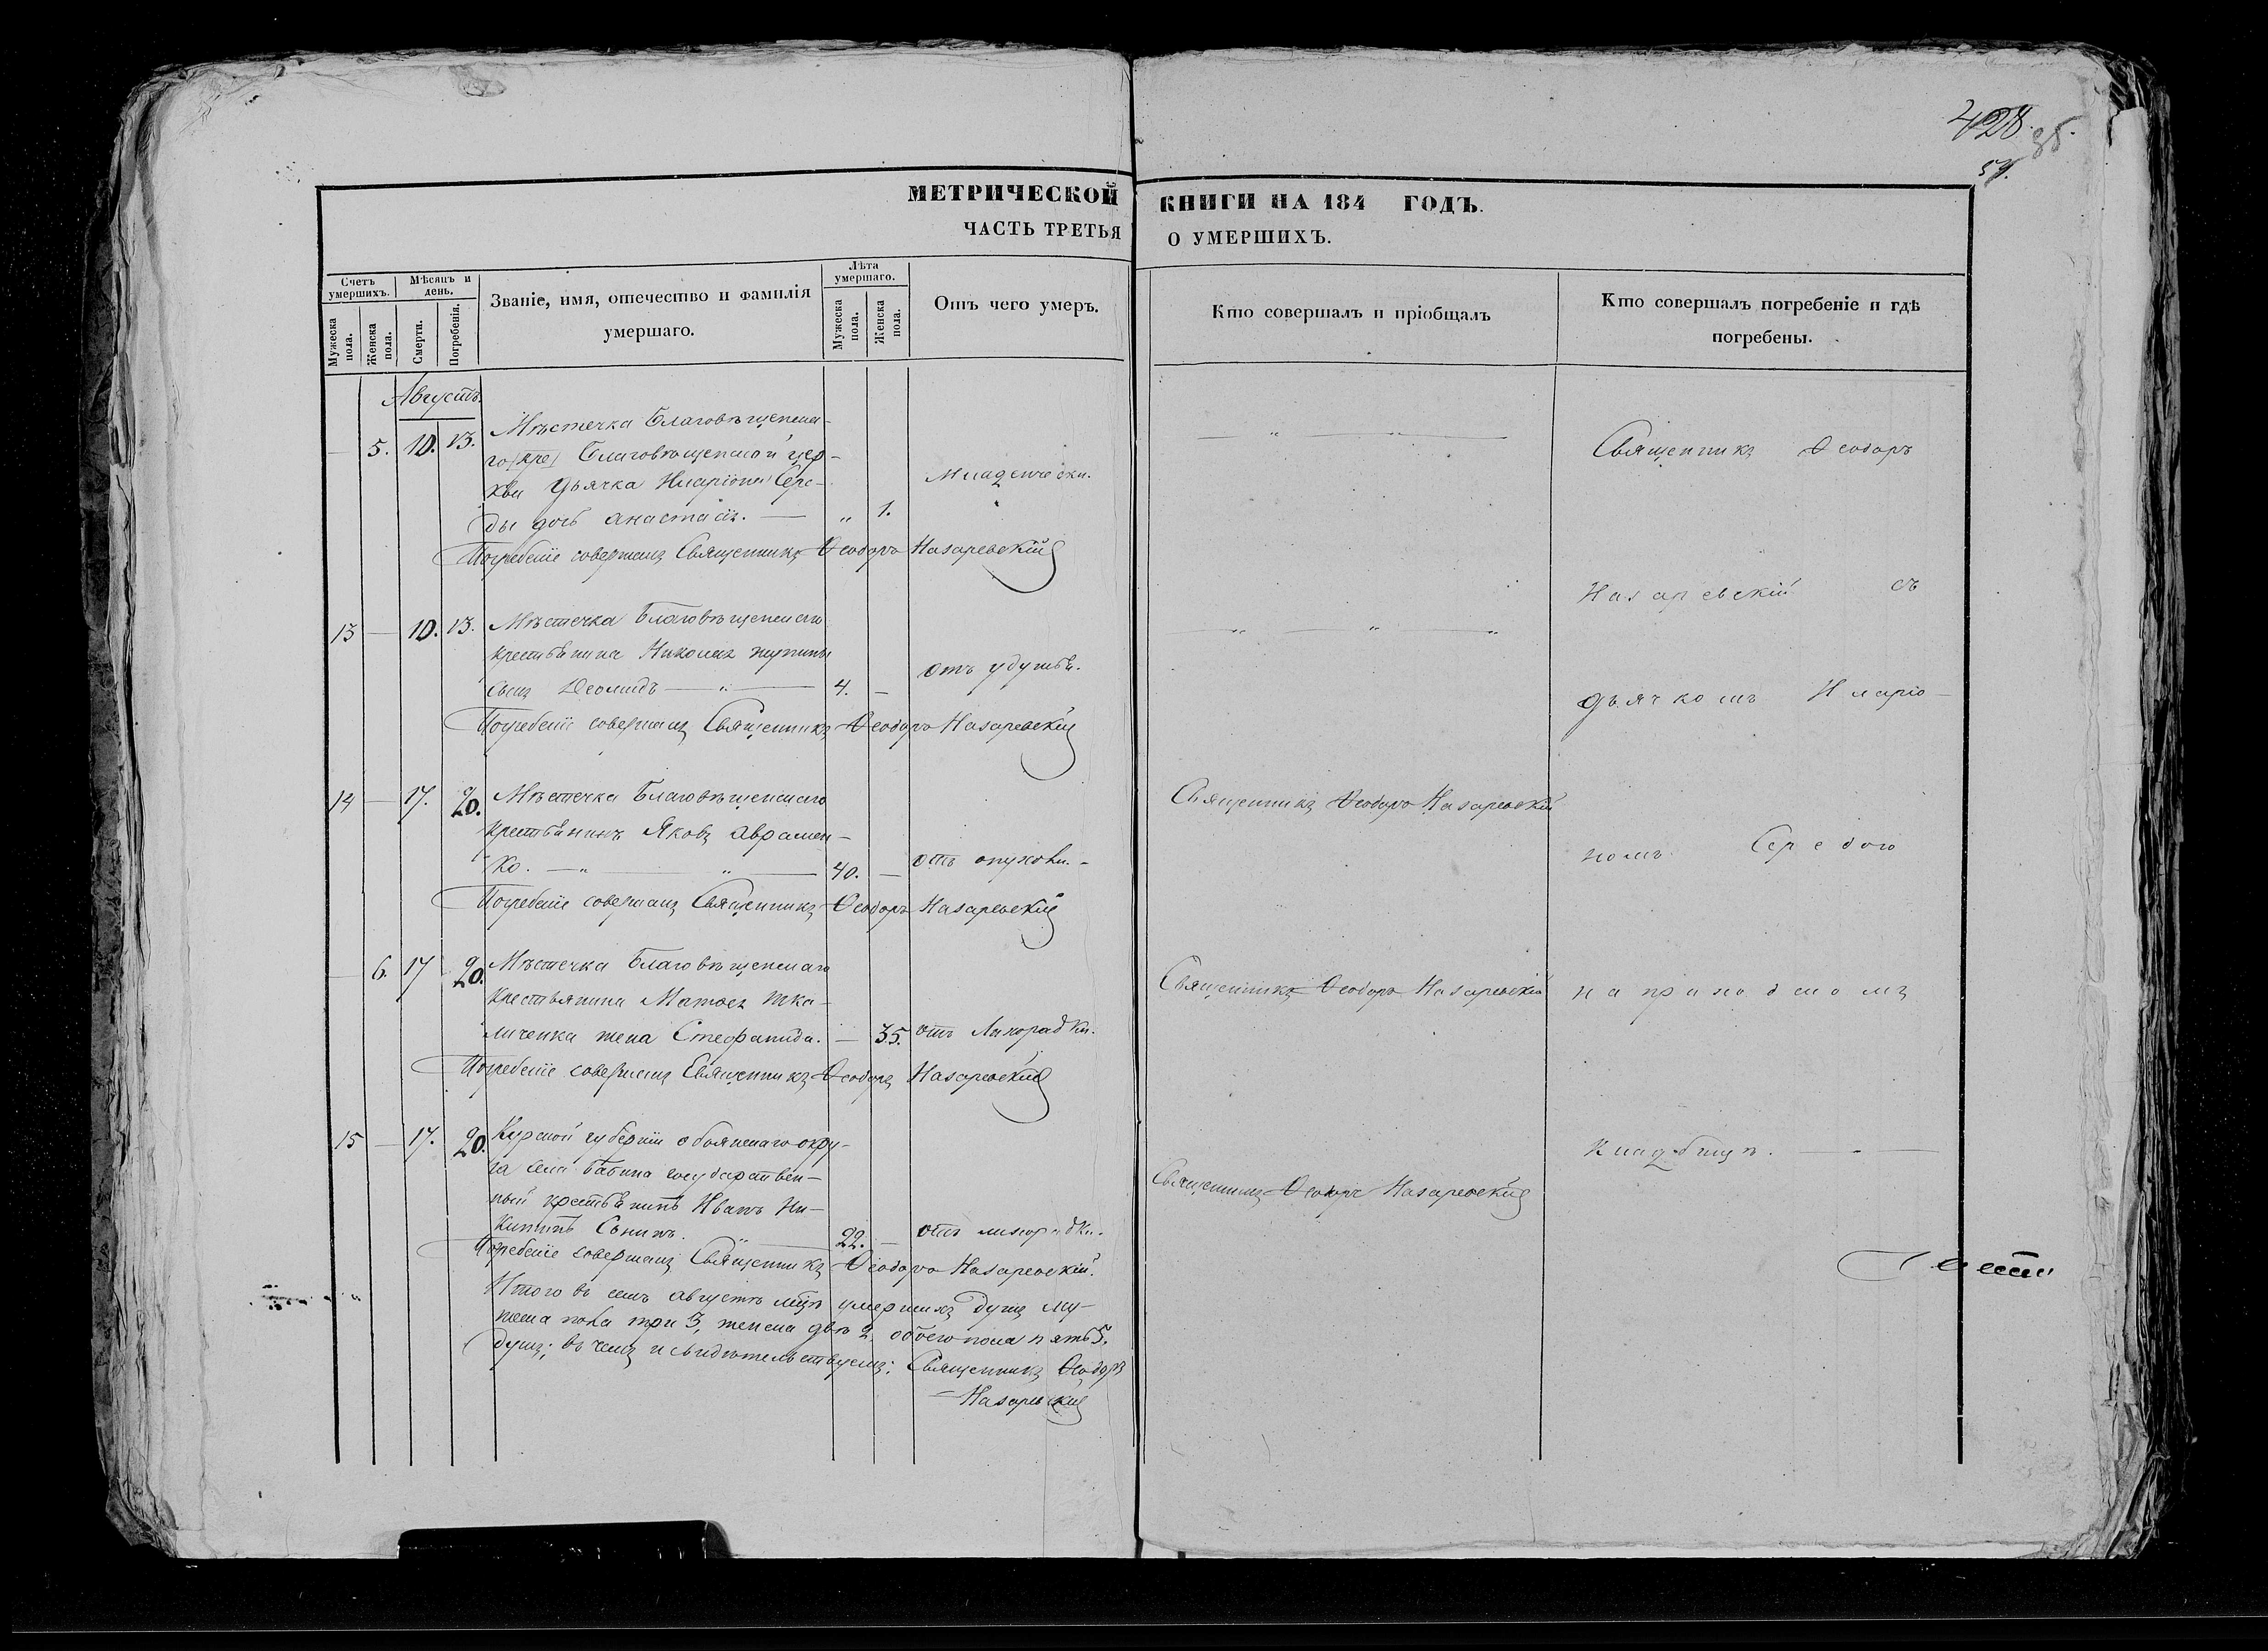 428. 35.
59.
МЕТРИЧЕСКОЙ КНИГИ НА 184 ГОДЪ.
ЧАСТЬ ТРЕТЬЯ О УМЕРШИХЪ.
Счетъ умершихъ.
Мужеска пола.
Женска пола.
Мѣсяцъ и день.
Смерти.
Погребенія.
Званіе, имя, отечество и фамилія умершаго.
Лѣта умершаго.
Мужеска пола.
Женска пола.
Отъ чего умеръ.
Кто совершалъ и пріобщалъ
Кто совершалъ погребеніе и гдѣ погребены.
Августъ.
— 5. 10. 13. Мѣстечка Благовѣщенска-
го Благовѣщенской цер-
кви дьячка Иларіона Сере-
ды дочь анастасія. — „ 1. Младенчески.
Погребеніе совершалъ Священникъ Ѳеодоръ Назаревскій
13 — 10. 13. Мѣстечка Благовѣщенскаго
крестьянина Николая
сынъ Леонидъ — „ — 4. — отъ удушья.
Погребеніе совершалъ Священникъ Ѳеодоръ Назаревскій
14 — 17. 20. Мѣстечка Благовѣщенскаго
крестьянинъ Яковъ Аврамен-
ко. — „ — „ — 40. — отъ опухоли. -
Священникъ Ѳеодоръ Назаревскій
Погребеніе совершалъ Священникъ Ѳеодоръ Назаревскій
— 6. 17 20. Мѣстечка Благовѣщенскаго
крестьянина Матѳея Тка-
личенка жена Стефанида. — 35. отъ Лихорадки.
Священникъ Ѳеодоръ Назаревскій
Погребеніе совершалъ Священникъ Ѳеодоръ Назаревскій
15 — 17. 20. Курской губерніи обоянскаго окру-
га села государствен-
ный крестьянинъ Иванъ Ни-
китинъ Сонинъ. „ — 22. — отъ лихорадки.
Священникъ Ѳеодоръ Назаревскій
Погребеніе совершалъ Священникъ Ѳеодоръ Назаревскій.
Итого въ семъ августѣ мцѣ умершихъ душъ му-
жеска пола три 3, женска двѣ 2, обоего пола пять 5.
душъ; въ чемъ и свидѣтельствуемъ: Священникъ Ѳеодоръ
Назаревскій
Священникъ Ѳеодоръ
Назаревскій съ
дьячкомъ Иларіо-
номъ Середою
на приходскомъ
кладбищѣ. — „ —